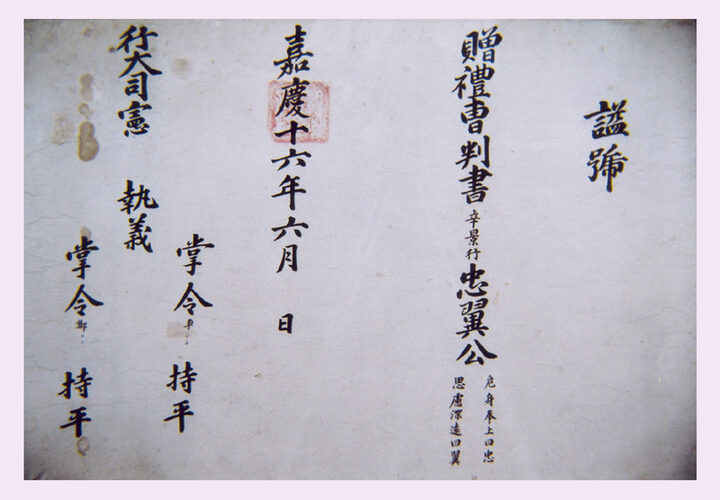 謚號
贈禮曺判書辛景行忠翼公
危身奉上曰忠
思慮深遠曰翼
嘉慶十六年六月 日
行大司憲 執義
掌令車 持平
掌令鄭 持平